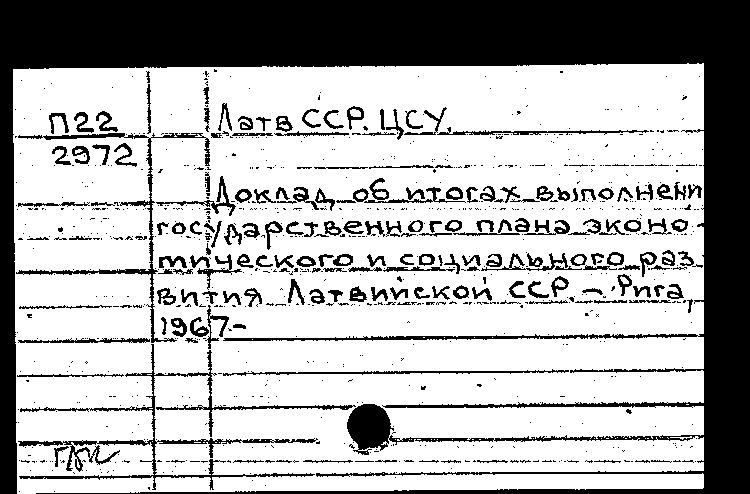 П22
2972
Латв ССР. ЦСУ.
Доклад об итогах выполнени
государственного плана эконо-
мического и социального раз
вития Латвийской ССР. – Рига,
1967-